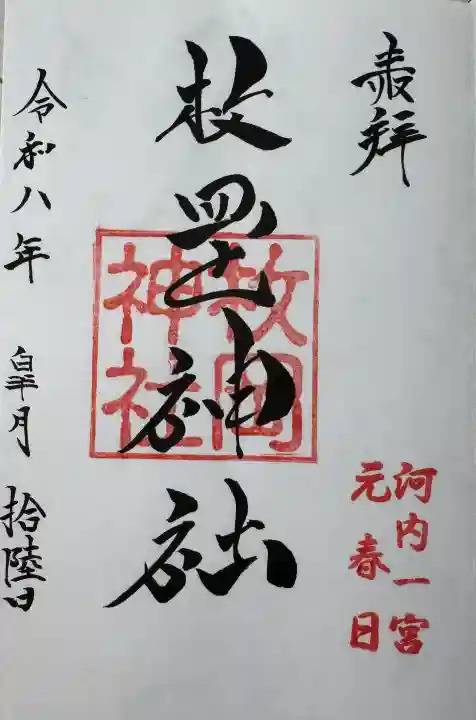 奉拝
河内一宮
元春日
枚岡神社
枚岡
神社
令和八年 皐月 拾陸日